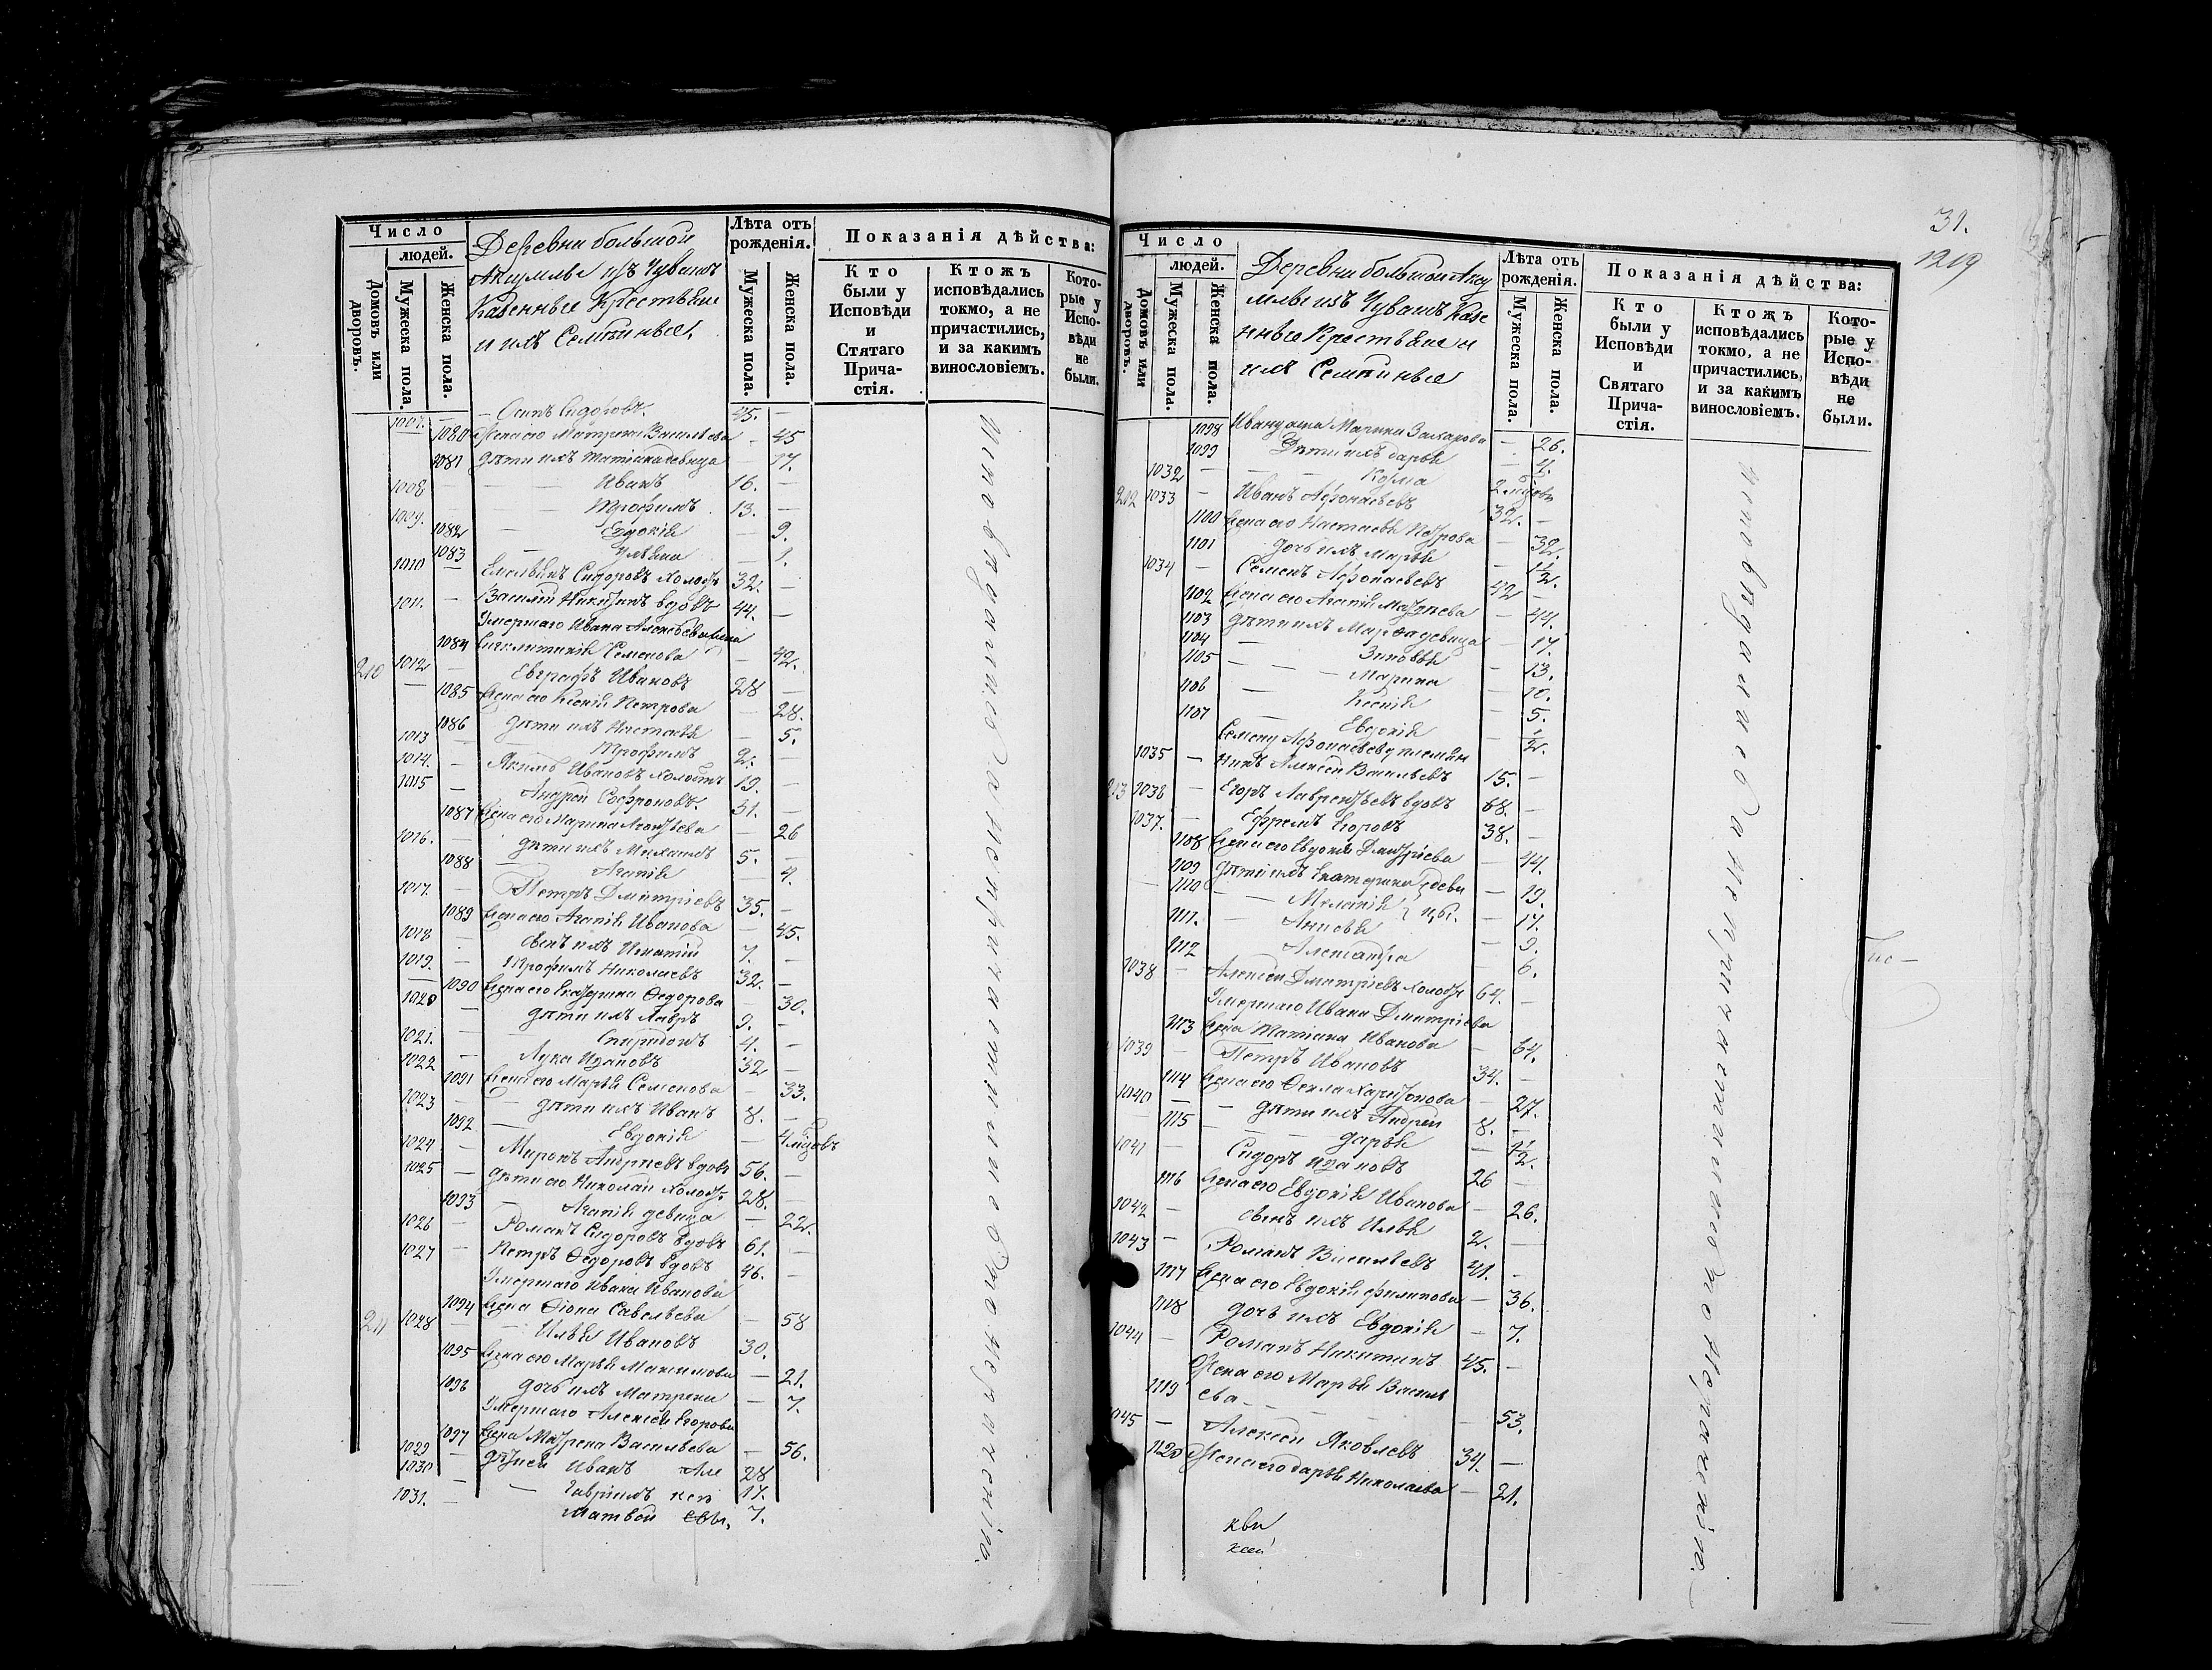 Число
людей.
Домовъ или дворовъ.
Мужеска пола.
Женска пола.
Деревни большой
Акцылвы изъ Чувашъ
Казенные Крестьяне
и ихъ Семѣйные.
Лѣта отъ рожденія.
Мужеска пола.
Женска пола.
Показанія дѣйства:
Кто были у Исповѣди и Стятаго Прича-стія.
Ктожъ исповѣдались токмо, а не причастились, и за какимъ винословіемъ.
Кото-рые у Испо-вѣди не были.
1007. — Осипъ Сидоровъ. 45. —
1080 Жена его Матрена Васильева — 45
1081 дѣти ихъ Татіана девица — 17.
1008 — Иванъ 16. —
1009. — Трофимъ 13. —
1082 — Евдокія — 9.
1083 — Ульяна — 1.
1010 — Емельянъ Сидоровъ холостъ 32. —
1011. — Василій Никитинъ вдовъ 44. —
Умершаго Ивана Алексѣева жена
1084 Синклитикія Семенова — 42.
210 1012 — Евграфъ Ивановъ 28 —
1085 Жена его Ксенія Петрова — 28.
1086 дѣти ихъ Настасья — 5.
1013 — Трофимъ 2. —
1014. — Якимъ Ивановъ холостъ 19. —
1015 — Андрей Софроновъ. 31. —
1087 Жена его Марина — 26
1016. — дѣти ихъ Михаилъ 5. —
1088 — Агапія — 4.
1017. — Петръ Дмитріевъ 35. —
1089 Жена его Агапія Иванова — 45.
1018 — сынъ ихъ Игнатій 7. —
1019. — Трофимъ Николаевъ 32. —
1090 Жена его Екатерина Ѳедорова — 30.
1020 — дѣти ихъ Лавръ 9. —
1021. — Спиридонъ 4. —
1022 — Лука Ивановъ 32 —
1091 Жена его Марья Семенова — 33.
1023 — дѣти ихъ Иванъ 8. —
1092 — Евдокія — 4 мѣсяцовъ
1024 — Миронъ Андреевъ вдовъ 56. —
1025 — дѣти его Николай холостъ 28. —
1093 — Агапія девица — 22.
1026 — Романъ Сидоровъ вдовъ 61. —
1027 — Петръ Ѳедоровъ вдовъ 46. —
Умершаго Ивана Иванова
1094 Жена Ѳіона Савельева — 58
211 1028 — Илья Ивановъ 30.
1095 Жена его Марья Максимова — 21.
1096 дочь ихъ Матрена — 7.
Умершаго Алексѣя Егорова
1097 Жена Матрена Васильева — 56.
1029 — дѣти ей Иванъ Але 28
1030 — Гавріилъ ксѣ 17.
1031. — Матвей евы. 7.
Исповѣдались а неПричастились по нераченію.
31.
1219
Число
людей.
Домовъ или дворовъ.
Мужеска пола.
Женска пола.
Деревни большой Акцы
лвы изъ Чувашъ Казе
нные Крестьяне и
ихъ Семѣйные
Лѣта отъ рожденія.
Мужеска пола.
Женска пола.
Показанія дѣйства:
Кто были у Исповѣди и Святаго Прича-стія.
Ктожъ исповѣдались токмо, а не причастились, и за какимъ винословіемъ.
Кото-рые у Испо-вѣди не были.
1098 Марина Захарова — 26.
1099 Дѣти ихъ дарья — 4.
1032 — Кузма 2 мѣсяцовъ
212 1033 — Иванъ Афонасьевъ 32. —
1100 Жена его Настасья Петрова — 32.
1101 дочь ихъ Марья — 1 1/2.
1034 — Семенъ Афонасьевъ 42 —
1102 Жена его Агапія Матвѣева — 44.
1103 дѣти ихъ Марѳа девица — 17.
1104 — Зиновья — 13.
1105 — Марина — 10.
1106 — Ксенія — 5.
1107 — Евдокія — 1/2.
Семену Афонасьеву племян
1035 — никъ Алексѣй Васильевъ 15. —
213 1036 — Егоръ Лаврентьевъ вдовъ 68. —
1037. — Ефремъ Егоровъ 38. —
1108 Жена его Евдокія Дмитріева — 44.
1109 дѣти ихъ Екатерина деви — 19.
1110 — Меланія цы. — 17.
1111. — Анисья — 9.
1112 — Александра — 6.
1038 — Алексѣй Дмитріевъ холостъ 64. —
Умершаго Ивана Дмитріева
1113 Жена Татіана Иванова — 64.
1039 — Петръ Ивановъ 34. —
1114 Жена его Ѳекла Харитонова — 27.
1040 — дѣти ихъ Андрей 8. —
1115 — дарья — 1 1/2.
1041 — Сидоръ Ивановъ 26 —
1116 Жена его Евдокія Иванова — 26.
1042 — сынъ ихъ Илья 2. —
1043 — Романъ Васильевъ 41. —
1117 Жена его Евдокія Филипова — 36.
1118 дочь ихъ Евдокія — 7.
1044 — Романъ Никитинъ 45. —
Жена его Марья Василь
1119 ева — 53.
1045 — Алексѣй Яковлевъ 34. —
1120 Жена его дарья Николаева — 21.
Исповѣдались а неПричастились по нераченію.